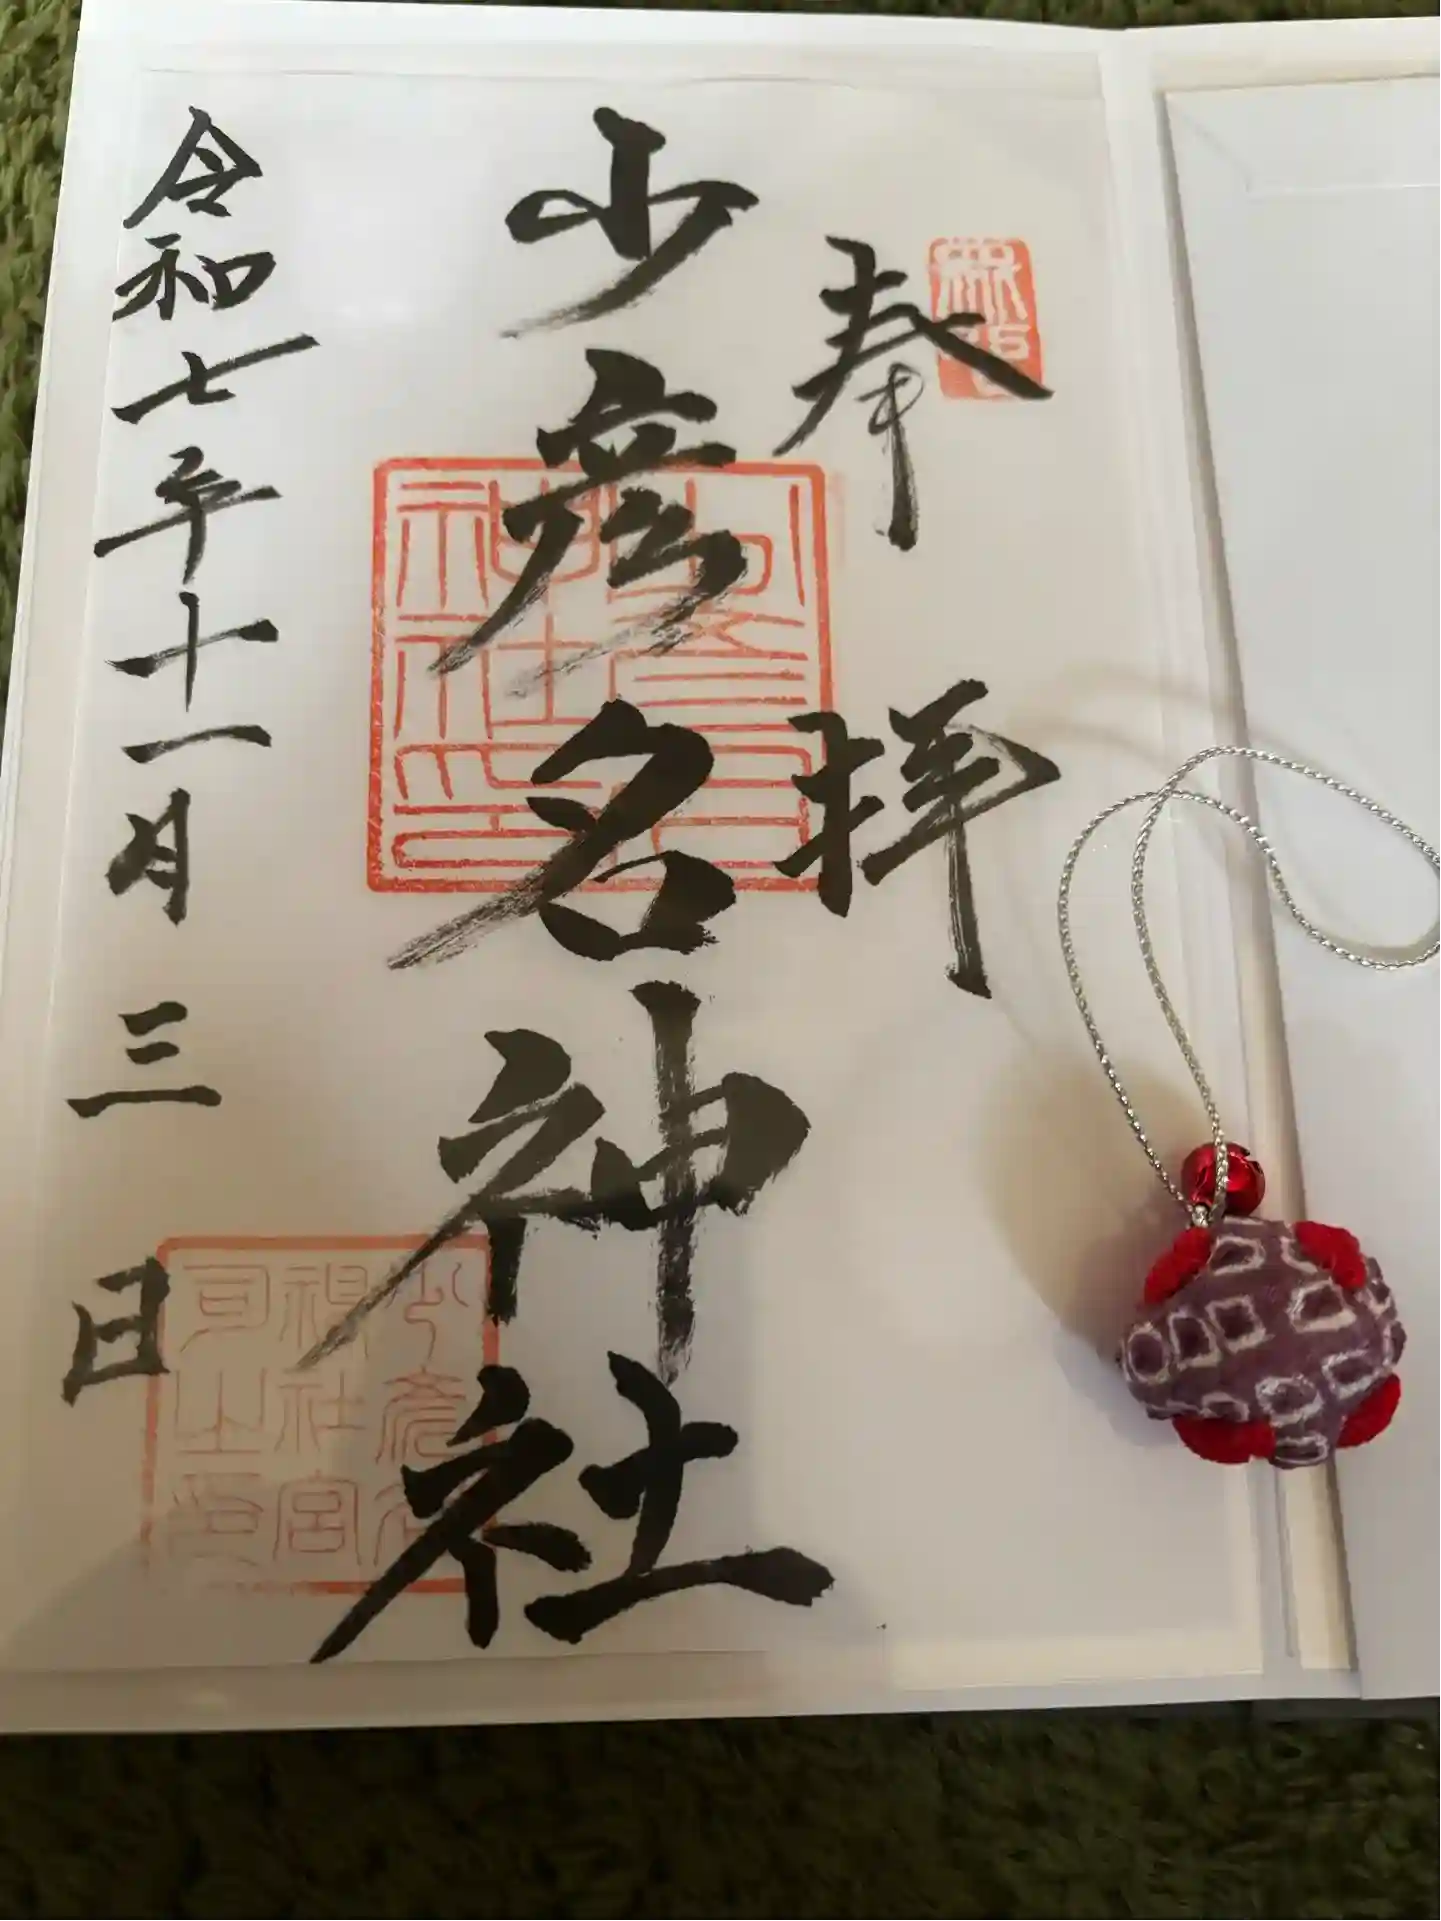 奉拝
少彦名神社
令和七年十一月三日
少彦名
神社印
少彦名
神社宮
司之印